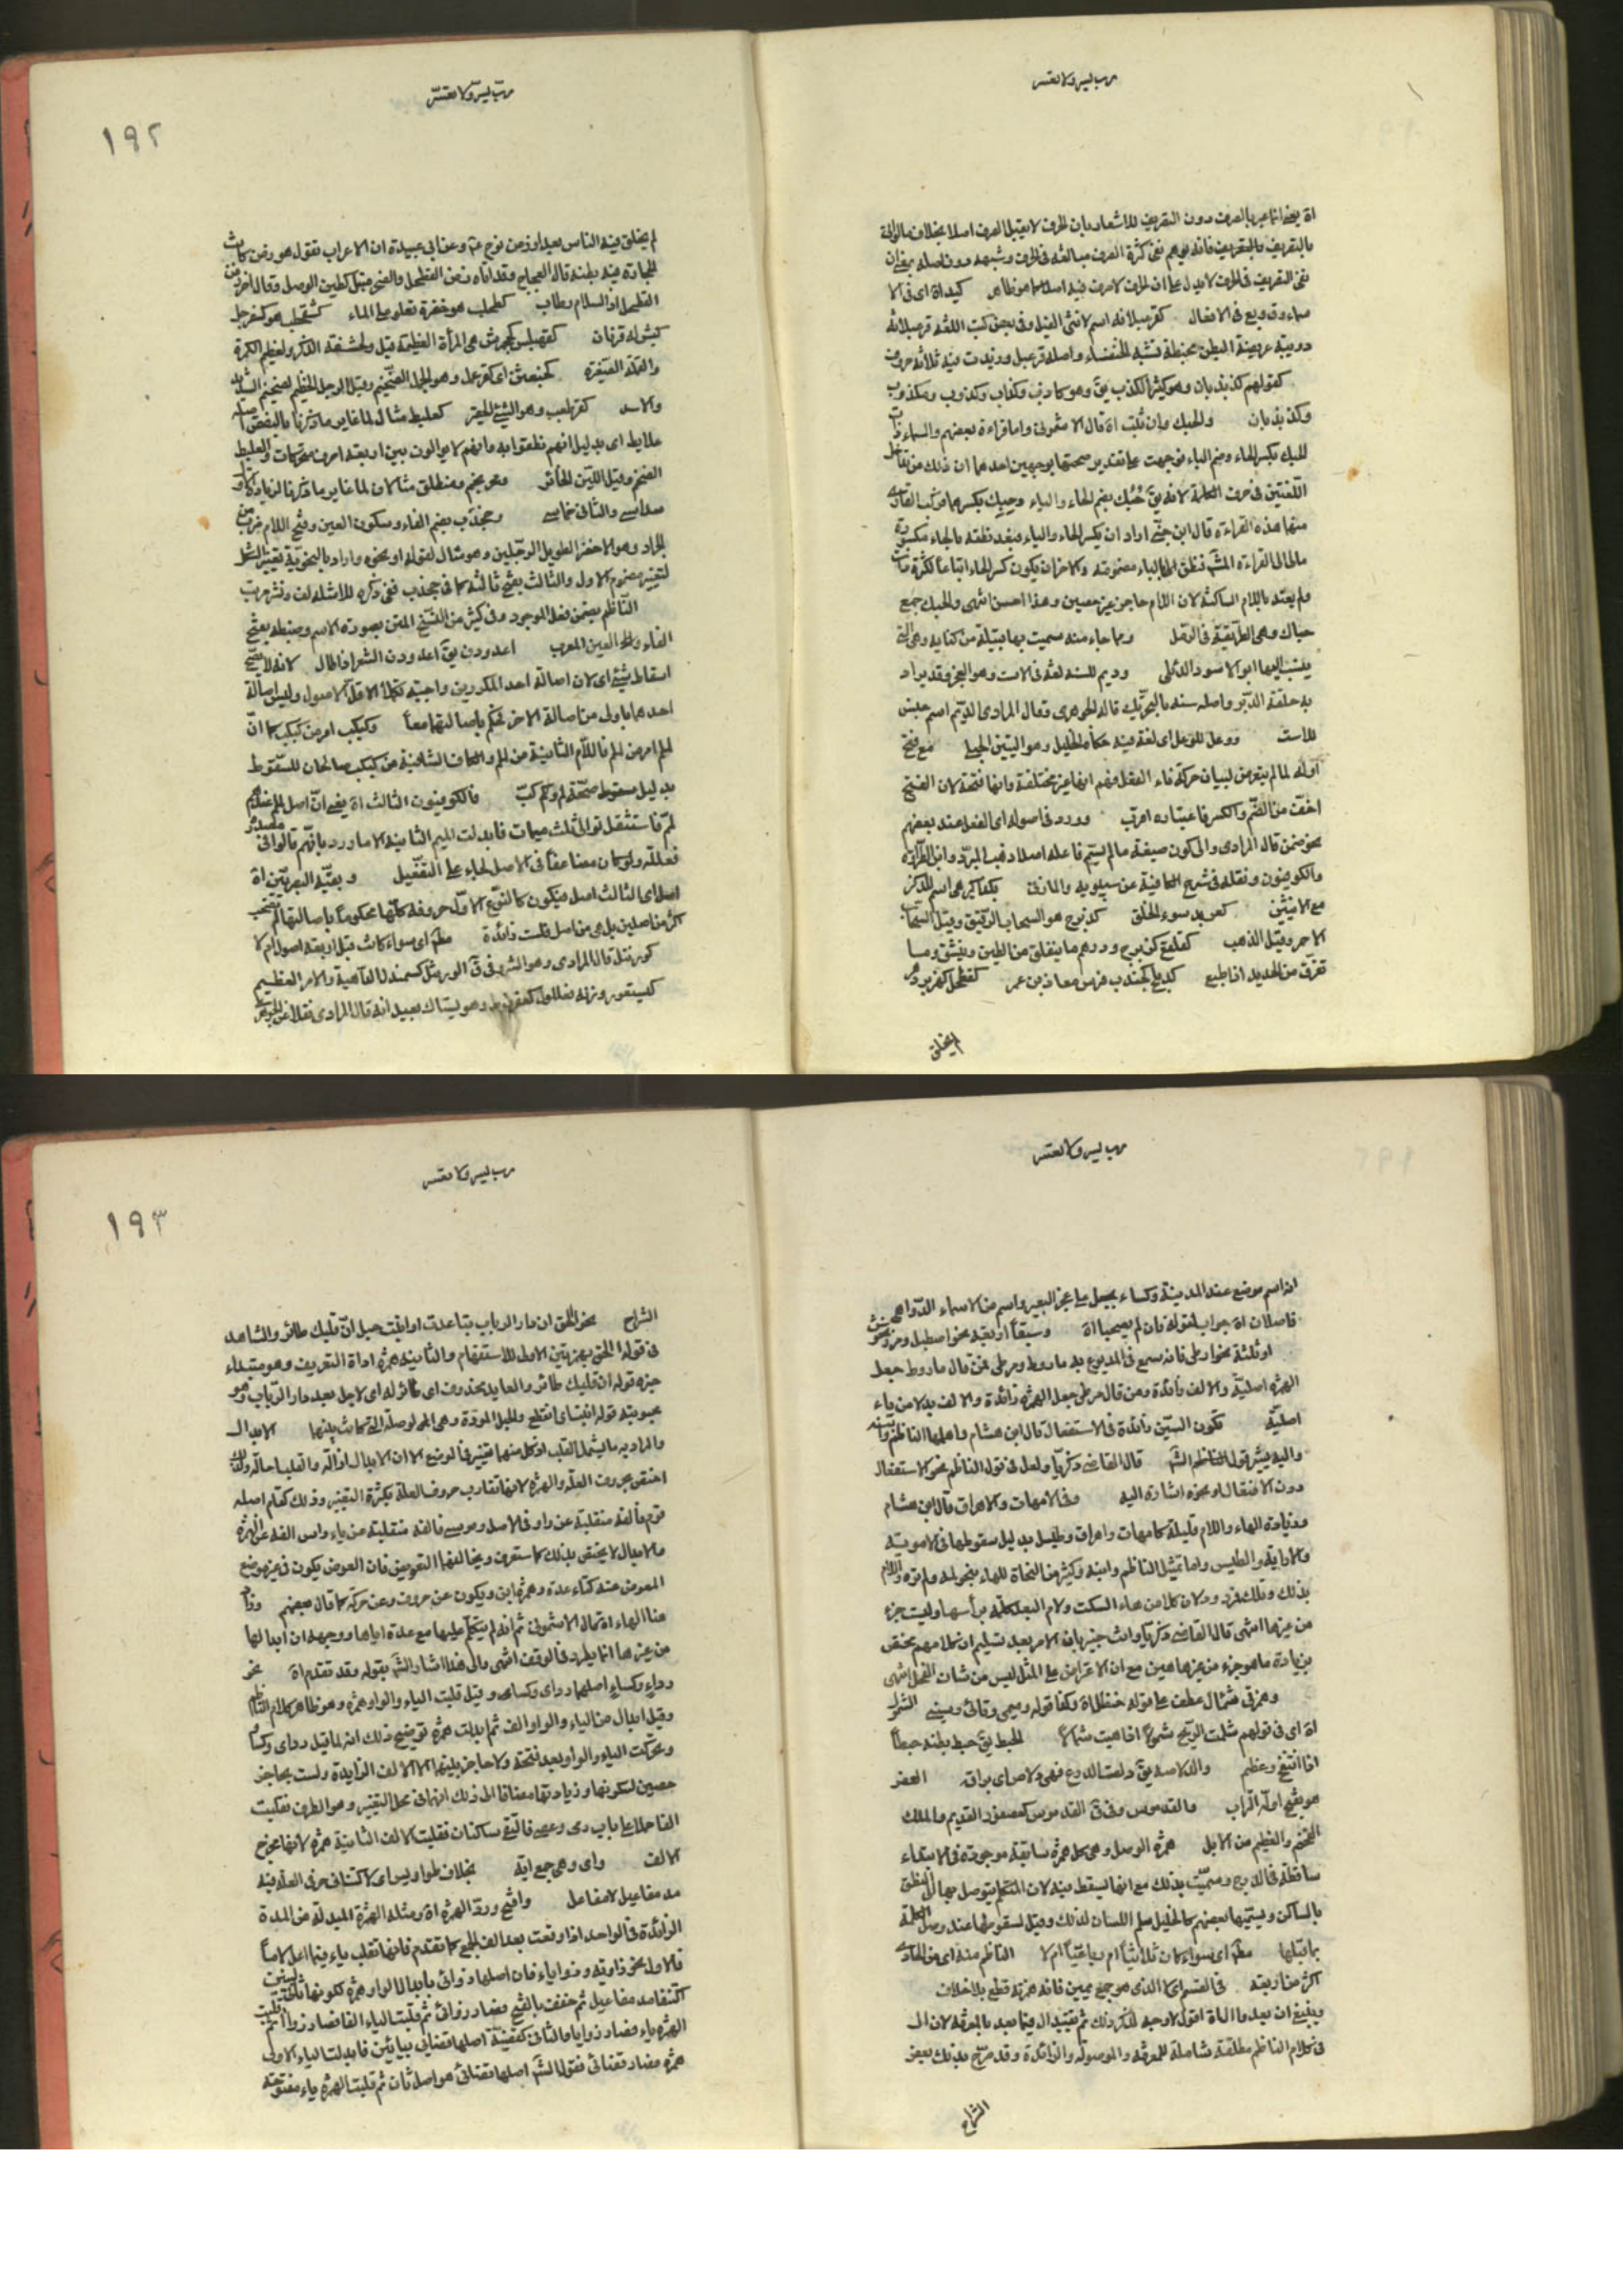 رب يسر ولا تعسر
اه يعني انما عبر بالصرف دون التصريف للاشعار بان الحرف لا يقبل الصرف اصلا بخلاف ما لو اتى
بالتصريف فانه يوهم نفي كثرة الصرف مبالغة في الحرف وشبهه دون اصله
نفي التصريف في الحرف لا يدل على ان الحرف لا صرف فيه اصلا كما هو ظاهر كيد اه اى فى الا
سماء ووقوع فى الافعال كقرعبلانه اسم لانثى الفيل وفى بعض كتب اللغة قرعبلانه
دويبة عريضة البطن محبنطة تشبه الخنفساء واصله قرعبل وزيدت فيه ثلاثة حرف
كقولهم كذبذبان وهو كثير الكذب يق وهو كاذب وكذاب وكذوب ومكذوب
وكذبذبان والحبك وان ثبت اه قال الاشمونى واما قراءة بعضهم والسماء ذات
الحبك بكسر الحاء وضم الباء فوجهت على تقدير صحتها بوجهين احدهما ان ذلك من تداخل
اللغتين فى حرف الكلمة لانه يق حُبُك بضم الحاء والباء وحِبِك بكسرهما فركب القارى
منهما هذه القراءة قال ابن جنى اراد ان يكسر الحاء والباء فبعد نطقه بالحاء مكسورة
مال الى القراءة المشهورة فنطق بالباء مضمومة والاخر ان يكون كسر الحاء اتباعا لكسرة ذات
ولم يعتد باللام الساكنة لان اللام حاجز غير حصين وهذا احسن انتهى والحبك جمع
حباك وهى الطريقة فى الرمل وما جاء منه سميت بها قبيلة من كنانة وهى التى
ينسب اليها ابو الاسود الدئلى ورئم للسته لغة فى الاست وهو العجز وقد يراد
به حلقة الدبر واصله سته بالتحريك قاله الجوهرى وقال المرادى الرئم اسم جنس
للاست ووعل للوعل اى لغة فيه حكاه الخليل وهو التيس الجبلى مع فتح
اوله لما لم يتعرض لبيان حركة فاء الفعل فهم انها غير مختلفة وانها فتحة لان الفتح
اخف من الضم والكسر فاعتباره اقرب وورد فى اصوله اى الفعل عند بعضهم
نحو ضمن قال المرادى والى كون صيغة ما لم يسم فاعله اصلا ذهب المبرد وابن الطراوة
والكوفيون ونقله فى شرح الكافية عن سيبويه والمازنى
مع الانيثين كعربد سوء الخلق كزبرج هو السحاب الرقيق وقيل السحاب
الاحمر وقيل الذهب كقلفع كزبرج ودرهم ما يتفلق من الطين ويتشقق وما
تفرق من الحديد اذا طبع كجندب فرس معاذ بن عمر كفطحل كهزبر دهر
لم يخلق
رب يسر ولا تعسر
١٩٢
لم يخلق فيه الناس بعد او زمن نوح عم وعن ابى عبيدة ان الاعراب تقول هو زمن كانت
الحجارة فيه رطبة قال العجاج وقد اتاه زمن الفطحل والصخر مبتل كطين الوحل وقال اخر زمن
الفطحل اذ السلام رطاب كطحلب هو خضرة تعلو على الماء كشقحطب هو كسفرجل
كبش له قرنان كقهبلس كجحمرش هى المرأة العظيمة قيل ولحشفة الذكر ولعظيم الكمرة
والقملة الصغيرة كخبعثن اى كقذعمل وهو الجمل الضخم وقيل الرجل العظيم الضخم الشديد
والاسد كقرطعب وهو الشئ الحقير كعلبط مثال لما غاير ما ذكرنا بالنقص اصله
علابط اى بدليل انهم نطقوا به وانهم لا يوالون بين اربعة احرف متحركات والعلبط
الضخم وقيل اللبن الخاثر ومحرنجم ومنطلق مثالان لما غاير ما ذكرنا لزيادة الاول
سداسى والثانى خماسى وجخدب بضم الفاء وسكون العين وفتح اللام ضرب من
الجراد وهو الاخضر الطويل الرجلين وهو مثال لقوله او نحوه واراد بالنحوية تغيير الشكل
لتغيير مضموم الاول والثالث بفتح ثالثه كما فى جخدب ففى ذكره للامثلة لف ونشر مرتب
الناظم بضمن فعل الموجود وفى كثير من النسخ المتن بصورة الاسم وضبطه بفتح
الفاء والعين المعرب اغدودن يق اغدودن الشعر اذا طال لانه لا يصح
اسقاط شئ اى لان اصالة احد المكررين واجبة تكملة لاقل الاصول وليس اصالة
احدهما باولى من اصالة الاخر فحكم باصالتهما معا وكبكب امر من كبكب كما ان
لملم امر من لملم فاللام الثانية من لملم والكاف الثانية من كبكب صالحان للسقوط
بدليل سقوط صحة لم وكب فالكوفيون الثالث اه يعنى ان اصل لملم عندهم
لمم فاستثقل توالى ثلث ميمات فابدلت الميم الثانية لاما ورد بانهم قالوا فى مصدره
فعللة ولو كان مضاعفا فى الاصل لجاء على التفعيل وبقية البصريين اه
اصل اى الثالث اصل فيكون كالنوع الاول حروفه كلها محكوما باصالتها
اكثر من اصلين بل هى من اصل فليست زائدة مطلقا اى سواء كانت قبل اربعة اصول ام لا
كورنتل قال المرادى وهو الشر وفى ق الورنتل كسمندل الداهية والامر العظيم
كيستعور وزنه فعللول كعضرفوط وهو يستاك بعيدانه قال المرادى نقلا عن الجوهرى
رب يسر ولا تعسر
انه اسم موضع عند المدينة وكساء يجعل على عجز البعير واسم من الاسماء الدواهى
فاصلان اه جواب لقوله فان لم يصحبا اه وسبقا اربعة نحو اصطبل ومرزجوش
او ثلثة نحو ارطى فانه سمع فى المدبوغ به ماروط ومرطى فمن قال ماروط جعل
الهمزة اصلية والالف زائدة ومن قال مرطى جعل الهمزة زائدة والالف بدلا من ياء
اصلية تكون السين زائدة فى الاستفعال قال ابن هشام واهملها الناظم وابنه
واليه يشير قول الناظم قال القاضى زكريا ولعل فى قول الناظم نحو الاستفعال
دون الافتعال او نحوه اشارة اليه وفى الامهات والاهراق قال ابن هشام
وزيادة الهاء واللام قليلة كامهات واهراق وطيسل بدليل سقوطها فى الامومة
والاراقة والطيس واما تمثيل الناظم وابنه وكثير من النحاة للهاء بنحو لمه ولم تره واللام
بذلك وتلك فمردود لان كلا من هاء السكت ولام البعد كلمة برأسها وليست جزء
من غيرها انتهى قال القاضى زكريا وانت خبير بان الامر بعد تسليم ان كلامهم مختص
بزيادة ما هو جزء من غيرها هين مع ان الاعتراض على المثل ليس من شان الفحل انتهى
وهمزتى شمال عطف على قوله حنظل اه وكذا قوله
اه اى فى قولهم شملت الريح شمولا اذا هبت شمالا الحبط يق حبط بطنه حبطا
اذا انتفخ وعظم والدلاصه يق دلصت الدرع فهى دلاص اى براق العفر
هو بفتح اوله التراب والقدموس وفى ق القدموس كعصفور القديم والملك
الضخم والعظيم من الابل همزة الوصل وهى كل همزة سابقة موجودة فى الابتداء
ساقطة فى الدرج وسميت بذلك مع انها تسقط فيه لان المتكلم يتوصل بها الى النطق
بالساكن ويسميها بعضهم كالخليل سلم اللسان لذلك وقيل لسقوطها عند وصل الكلمة
بما قبلها مطلقا اى سواء كان ثلاثيا ام رباعيا ام لا الناظم منه اى من الحادى
اكثر من اربعة فى القسم اى الذى هو جمع يمين فانه همزة قطع بلا خلاف
وينبغى ان يعد ما اله اه اقول لا وجه لذكر ذلك ثم تقييد ال فيما بعد بالمعرفة لان ال
فى كلام الناظم مطلقة شاملة للمعرفة والموصولة والزائدة وقد صرح بذلك بعض
الشراح
رب يسر ولا تعسر
١٩٣
الشراح نحو الحق ان دار الرباب تباعدت او انبت حبل ان قلبك طائر والشاهد
فى قوله الحق بهمزتين الاولى للاستفهام والثانية همزة اداة التعريف وهو مبتداء
خبره قوله ان قلبك طائر والعايد محذوف اى طائر له اى لاجل بعد دار الرباب وهو
محبوبته قوله انبت اى انقطع والحبل المودة وهى الوصلة التى كانت بينهما الابدال
والمراد به ما يشمل القلب اذ كل منهما تغيير فى الموضع الا ان الابدال ازالة والقلب احالة ولذلك
اختص بحروف العلة والهمزة لانها تقارب حروف العلة بكثرة التغيير وذلك كقام اصله
قوم فالفه منقلبة عن واو فى الاصل وموسى فالفه منقلبة عن ياء وراس الفه عن الهمزة
والابدال لا يختص بذلك كما ستعرف ويخالفهما التعويض فان العوض يكون فى غير موضع
المعوض عنه كتاء عدة وهمزة ابن ويكون عن حروف وعن حركة كما قال بعضهم وزاد
هنا الهاء اه قال الاشمونى ثم انه لم يتكلم عليها مع عده اياها ووجهه ان ابدالها
من غيرها انما يطرد فى الوقف انتهى والى هذا اشار الش بقوله وقد تقدم اه نحو
رداء وكساء اصلهما رداى وكساو وقيل قلبت الياء والواو همزة وهو ظاهر كلام الناظم
وقيل ابدال من الياء والواو الف ثم ابدلت همزة توضيح ذلك انه لما قيل رداى وكساو
وتحركت الياء والواو بعد فتحة ولا حاجز بينهما الا الالف الزايدة وليست بحاجز
حصين لسكونها وزيادتها مضافا الى ذلك انها فى محل التغيير وهو الطرف فقلبت
الفا حملا على باب رحى وعصى فالتقى ساكنان فقلبت الالف الثانية همزة لانها مخرج
الالف واى وهى جمع اية بخلاف طواويس اى لاكتناف حرفى العلة فيه
مد مفاعيل لا مفاعل وافتح ورد الهمزة اه ومثله الهمزة المبدلة من المدة
الزائدة فى الواحد اذا وقعت بعد الف الجمع كما تقدم فانها تقلب ياء فيما اعل لاما
فالاول نحو زاوية وزوايا فان اصلها زوائى بابدال الواو همزة لكونها ثانى لينين
اكتنفا مد مفاعيل ثم خففت بالفتح فصار زوائى ثم قلبت الياء الفا فصار زواا ثم قلبت
الهمزة ياء فصار زوايا والثانى كقضية اصلها قضايى بيائين فابدلت الياء الاولى
همزة فصار قضائى فقول الش اصلها قضائى هو اصل ثان ثم قلبت الهمزة ياء مفتوحة